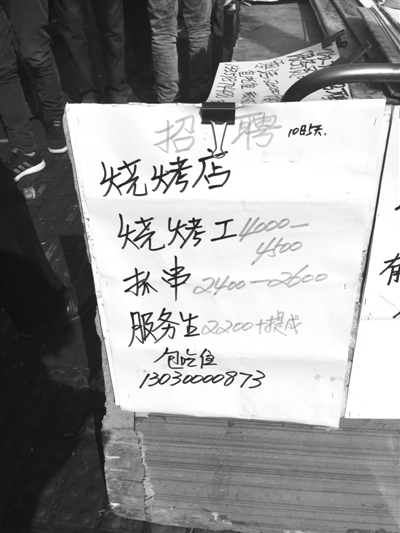 招聘 10日5天.
烧烤店
烧烤工 4000—4500
抹串 2400—2600
服务生 2200+提成
包吃住
13030000873